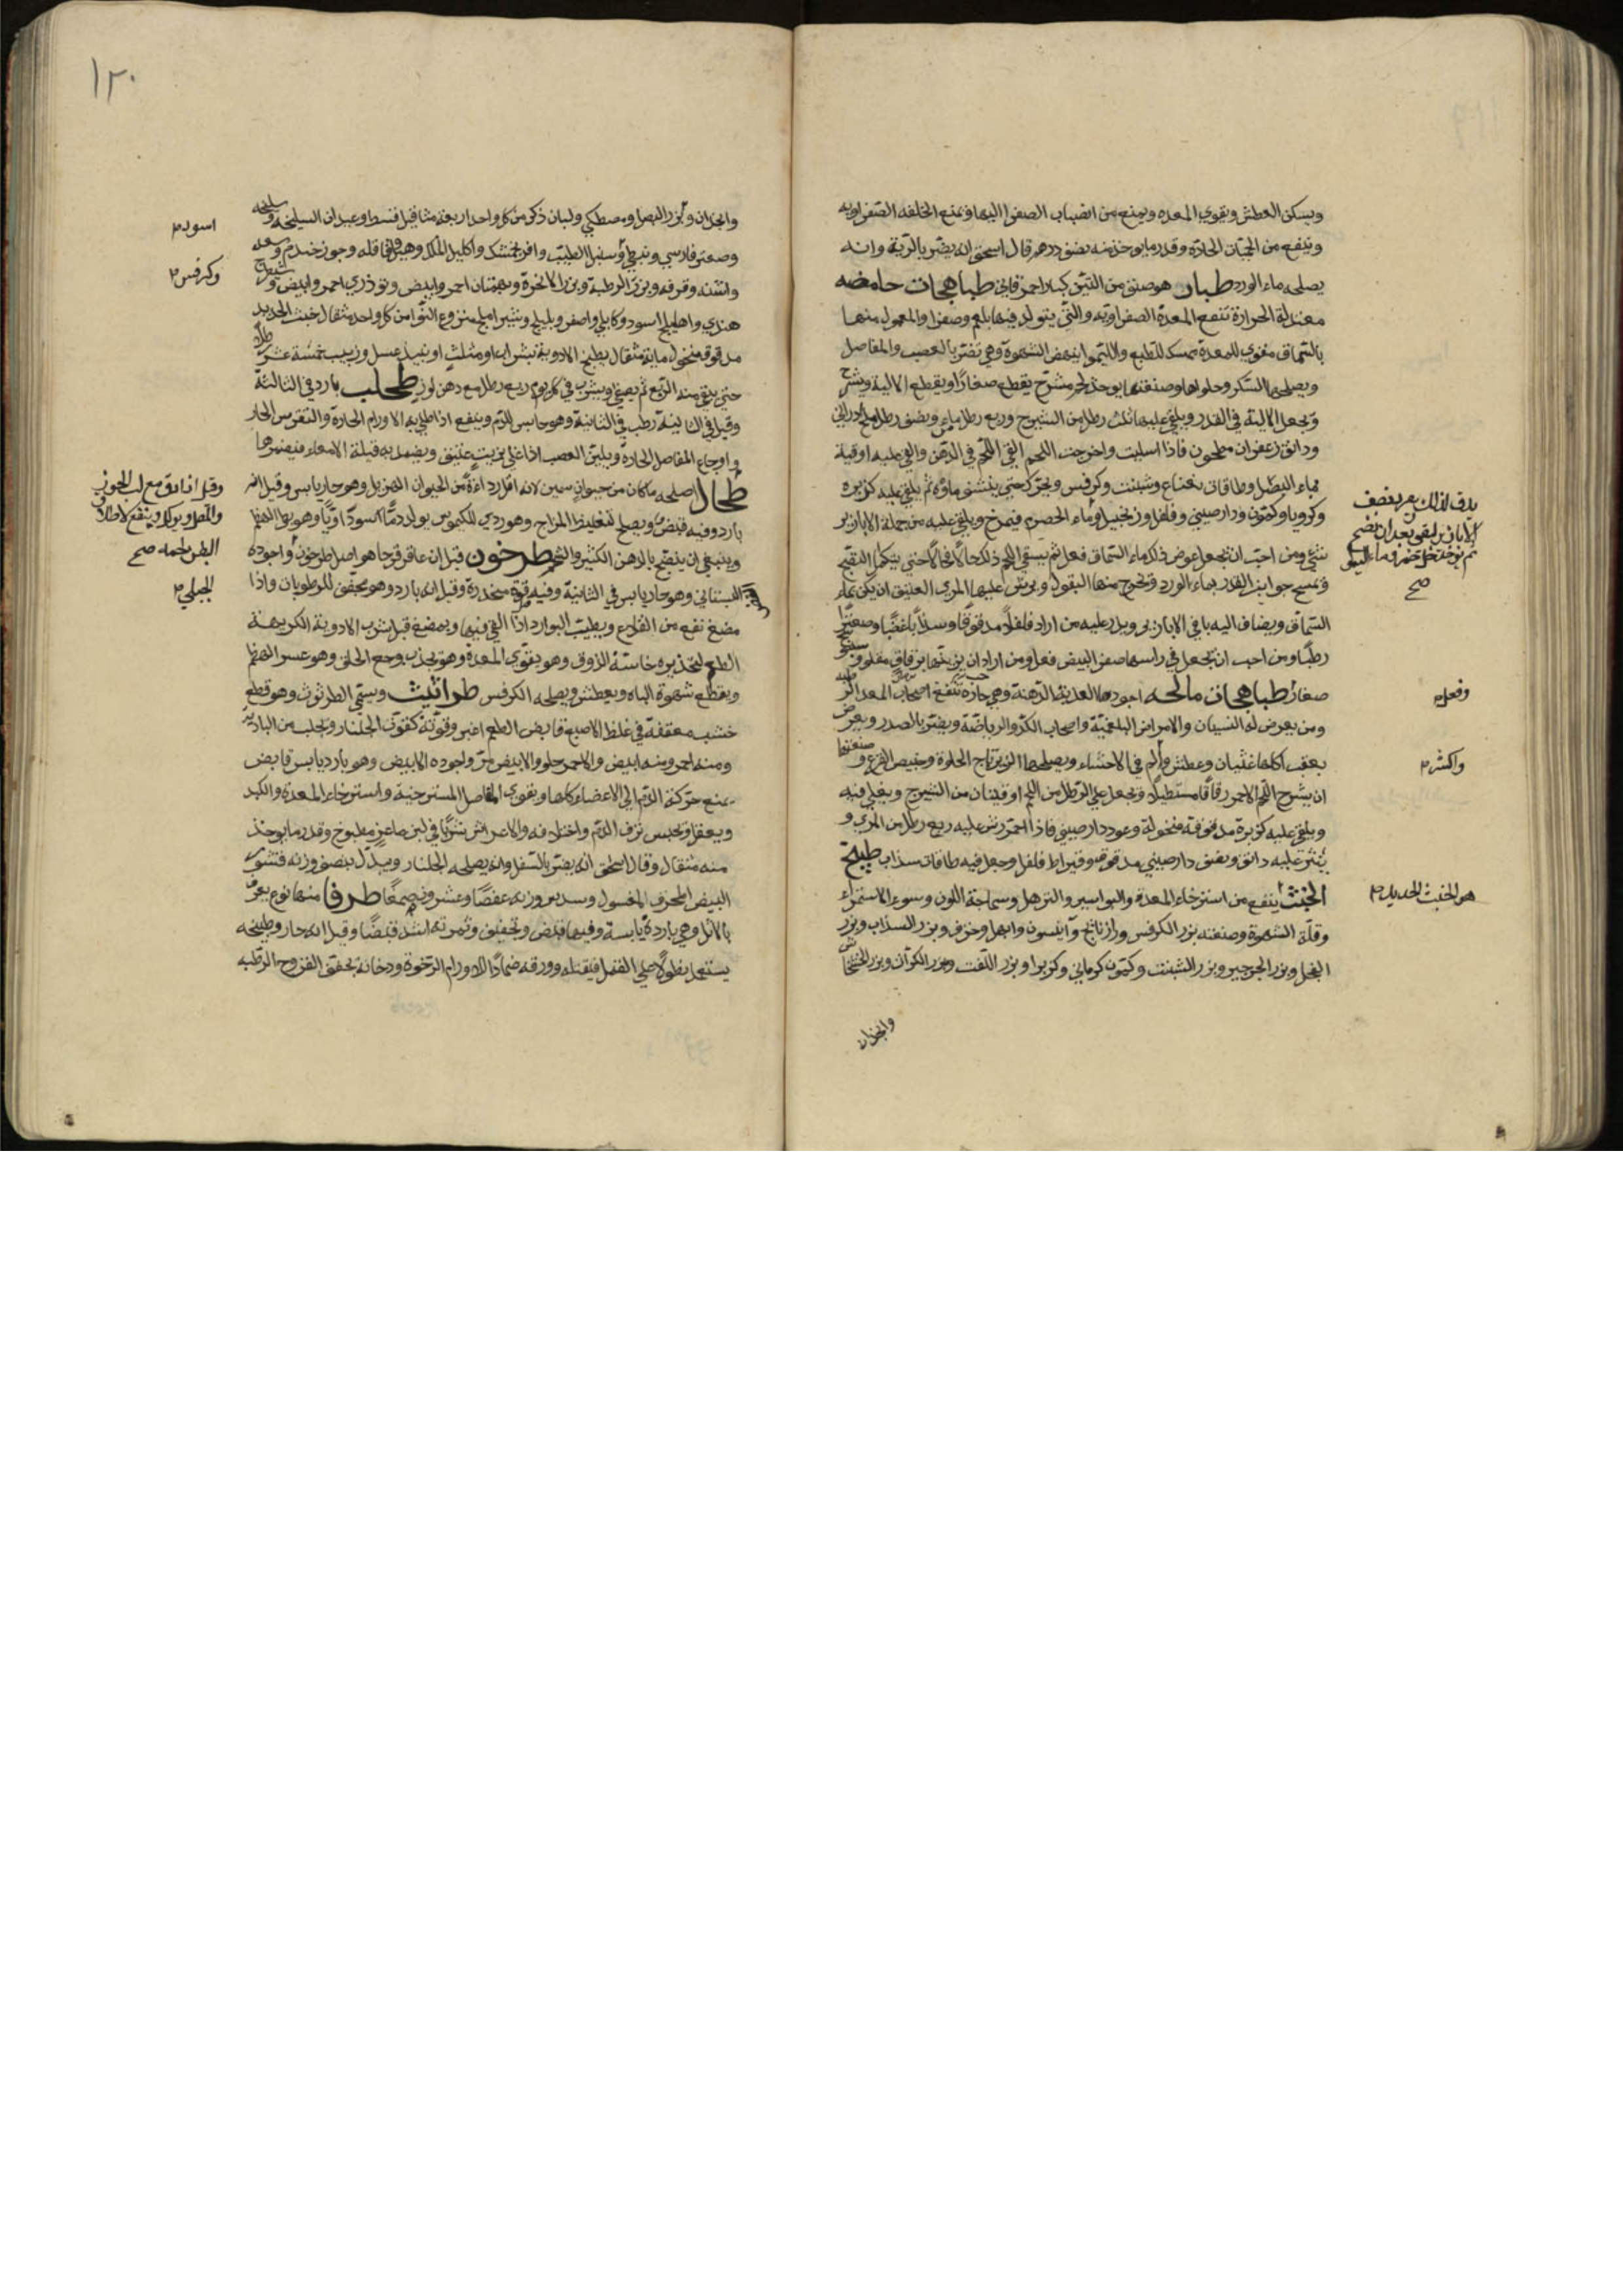 ويسكن العطش ويقوي المعده ويمنع من انصباب الصفرا اليها ويمنع الخلفه الصفراويه
وينفع من الحميات الحادة وقدر ما يوخذ منه نصف درهم قال اسحق انه يضر بالرية وانه
يصلحه ماء الورد طبار هو صنف من التين كبار احمر قاني طباهجات حامضه
معتدلة الحرارة تنفع المعدة الصفراويه والتي يتولد فيها بلغم وصفرا والمعمول منها
بالسماق مقوي للمعدة ممسك للطبع والليموا ينهض الشهوة وهي تضر بالعصب والمفاصل
ويصلحها السكر وحلواها وصنعتها يوخذ لحم مشرح يقطع صغارا ويقطع الالية ويشرح
وتجعل الالية في القدر ويلقي عليها ثلث رطل من الشيرج وربع رطل ماء ونصف رطل ملح اندراني
ودانق زعفران مطحون فاذا اسليت واخرجت اللحم القي اللحم في الدهن والقي عليه اوقية
ماء البصل وطاقات نعناع وشبنت وكرفس ويحرك حتي ينشف ماؤه ثم يلقي عليه كزبره
وكرويا وكمون ودارصيني وفلفل وزنجبيل وماء الحصرم فيمرخ ويلقي عليه من جملة الابازير
شي ومن احب ان يجعل عوض ذلك ماء السماق فعل ثم يسقي اللحم ذلك حالا فحالا حتي يتكمل النضج
وتمسح جوانب القدر بماء الورد وتخرج منها البقول ويرش عليها المري العتيق ان يكن بماء
السماق ويضاف اليه باقي الابازير ويذر عليه من اراد فلفلا مدقوقا وسذابا غضا وصعترا
رطبا ومن احب ان يجعل في راسها صفر البيض فعل ومن اراد ان يزينها برقاق مقلو وسنبوسج
صغار طباهجات مالحه اجودها العذبة الدهنة وهي حارة تنفع اصحاب المعد الرطبه
ومن يعرض له النسيان والامراض البلغمية واصحاب الكد والرياضة ويضر بالصدر ويعرض
بعقب اكلها غثيان وعطش والم في الاحشاء ويصلحها الزيرباج الحلوة وخبيص القرع وصنعتها
ان يشرح اللحم الاحمر رقاقا مستطيلا ويجعل علي الرطل من اللحم اوقيتان من الشيرج ويغلي فيه
ويلقي عليه كزبرة مدقوقة منخولة وعود دارصيني فاذا احمر رش عليه ربع رطل من المري و
ينثر عليه دانق ونصف دارصيني مدقوق وقيراط فلفل وجعل فيه طاقات سذاب طبيخ
الخبث ينفع من استرخاء المعدة والبواسير والترهل وسماجة اللون وسوء الاستمراء
وقلة الشهوة وصنعته بزر الكرفس ورازيانج وانيسون وابهل وحرف وبزر السذاب وبزر
الفجل وبزر الجرجير وبزر الشبنت وكمون كرماني وكرويا وبزر اللفت وبزر الكراث وبزر الخشخاش
وانجدان
وفعله
واكثر م
هو الخبث الحديد م
١٢٠
وانجدان وبزر البصل ومصطكي ولبان ذكر من كل واحد اربعة مثاقيل قسط وعيدان السليخه وسليخه
وصعتر فارسي ونبطي وسنبل الطيب وافرنجمشك واكليل الملك وهيل وقاقله وجوز جندم وسعد
واشنه وقرفه وبزر الرطبة وبزر الانجرة وبهمنان احمر وابيض وتوذري احمر وابيض وشيطرج
هندي واهليلج اسود وكابلي واصفر وبليلج وشير املج منزوع النوا من كل واحد مثقال خبث الحديد
مدقوق منخول ماية مثقال يطبخ الادوية بشراب او مثلث او نبيذ عسل وزبيب خمسة عشر رطلا
حتي يبقي منه الربع ثم يصفي ويشرب في كل يوم ربع رطل مع دهن لوز طحلب بارد في الثالثة
وقيل في الثانية رطب في الثانية وهو حابس للدم وينفع اذا طلي به الاورام الحارة والنقرس الحار
واوجاع المفاصل الحارة ويلين العصب اذا غلي بزيت عتيق ويضمد به قيلة الامعاء فيضمرها
طحال اصلحه ماكان من حيوان سمين لانه اقل رداءة من الحيوان الهزيل وهو حار يابس وقيل انه
بارد وفيه قبض ويصلح لتغليظ المزاج وهو ردي الكيموس يولد دما اسوداويا وهو بطي الهضم
وينبغي ان ينضج بالدهن الكثير والشحم طرخون قيل ان عاقر قرحا هو اصل طرخون واجوده
البستاني وهو حار يابس في الثانية وفيه قوة مخدرة وقيل انه بارد وهو مجفف للرطوبات واذا
مضغ نفع من القلاع ويطيب البوارد اذا القي فيها ويمضغ قبل شرب الادوية الكريهة
الطعم لتخديره حاسة الذوق وهو يقوي المعدة وهو يحدث وجع الحلق وهو عسر الهضم
ويقطع شهوة الباه ويعطش ويصلحه الكرفس طراثيث ويسمي الطرثوث وهو قطع
خشب معقفة في غلظ الاصبع قابض الطعم اغبر وقوته كقوة الجلنار وتجلب من الباديه
ومنه احمر ومنه ابيض والاحمر حلو والابيض مر واجوده الابيض وهو بارد يابس قابض
يمنع حركة الدم الي الاعضاء كلها ويقوي المفاصل المسترخية واسترخاء المعدة والكبد
ويعقل ويحبس نزف الدم واختلافه والاعراس شربا في لبن ماعز مطبوخ وقدر ما يوخذ
منه مثقال وقال اسحق انه يضر بالسفل وانه يصلحه الجلنار ويبدل بنصف وزنه قشور
البيض المحرق المغسول وسدس وزنه عفصا وعشر وزنه صمغا طرفا منها نوع يعرف
بالاثل وهي باردة يابسة وفيها قبض وتجفيف وثمرته اشد قبضا وقيل انه حار وطبيخه
يستعمل نطولا علي القمل فيقتله وورقه ضمادا للاورام الرخوة ودخانه يجفف القروح الرطبه
اسود م
وكرفس م
وقيل اذا دق مع لب الجوز
البطن لجمه صح
الجبلي م